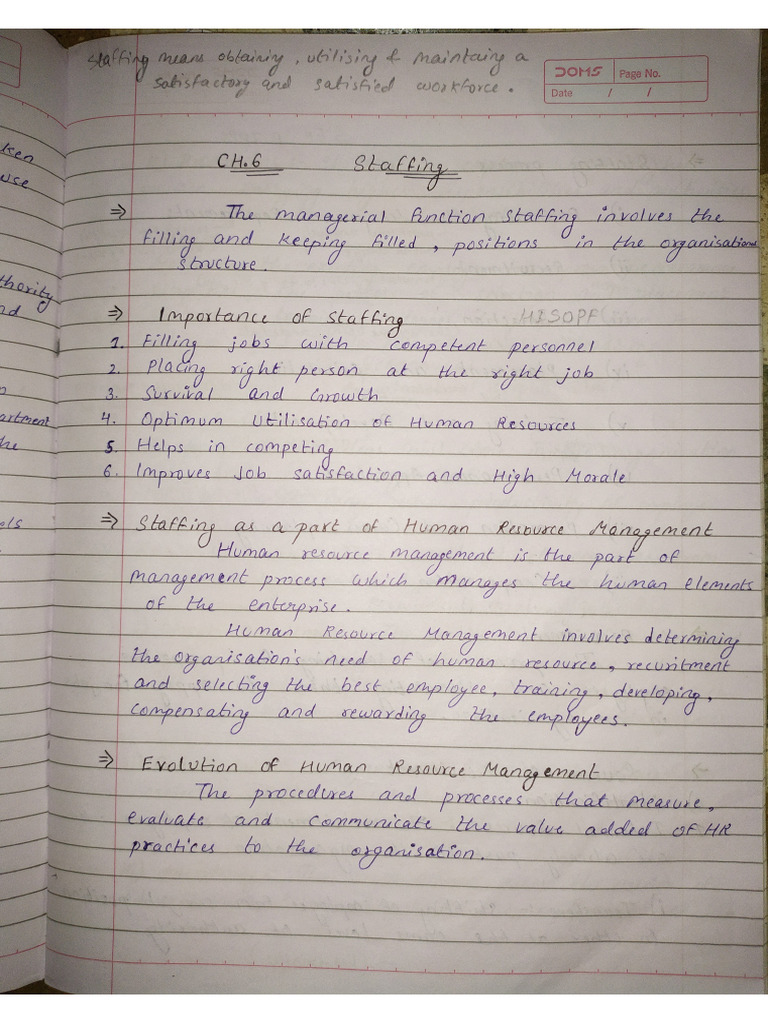 Staffing means obtaining, utilising & maintaing a
satisfactory and satisfied workforce.
DOMS Page No.
Date / /
ken
use
CH.6 Staffing
⇒ The managerial function staffing involves the
filling and keeping filled, positions in the organisational
structure.
thority
nd
⇒ Importance of staffing HISOPF
1. Filling jobs with competent personnel
2. Placing right person at the right job
3. Survival and Growth
4. Optimum Utilisation of Human Resources
artment
5. Helps in competing
he
6. Improves Job satisfaction and High Morale
els
⇒ Staffing as a part of Human Resource Management
Human resource management is the part of
management process which manages the human elements
of the enterprise.
Human Resource Management involves determining
the organisation's need of human resource, recuritment
and selecting the best employee, training, developing,
compensating and rewarding the employees.
⇒ Evolution of Human Resource Management
The procedures and processes that measure,
evaluate and communicate the value added of HR
practices to the organisation.